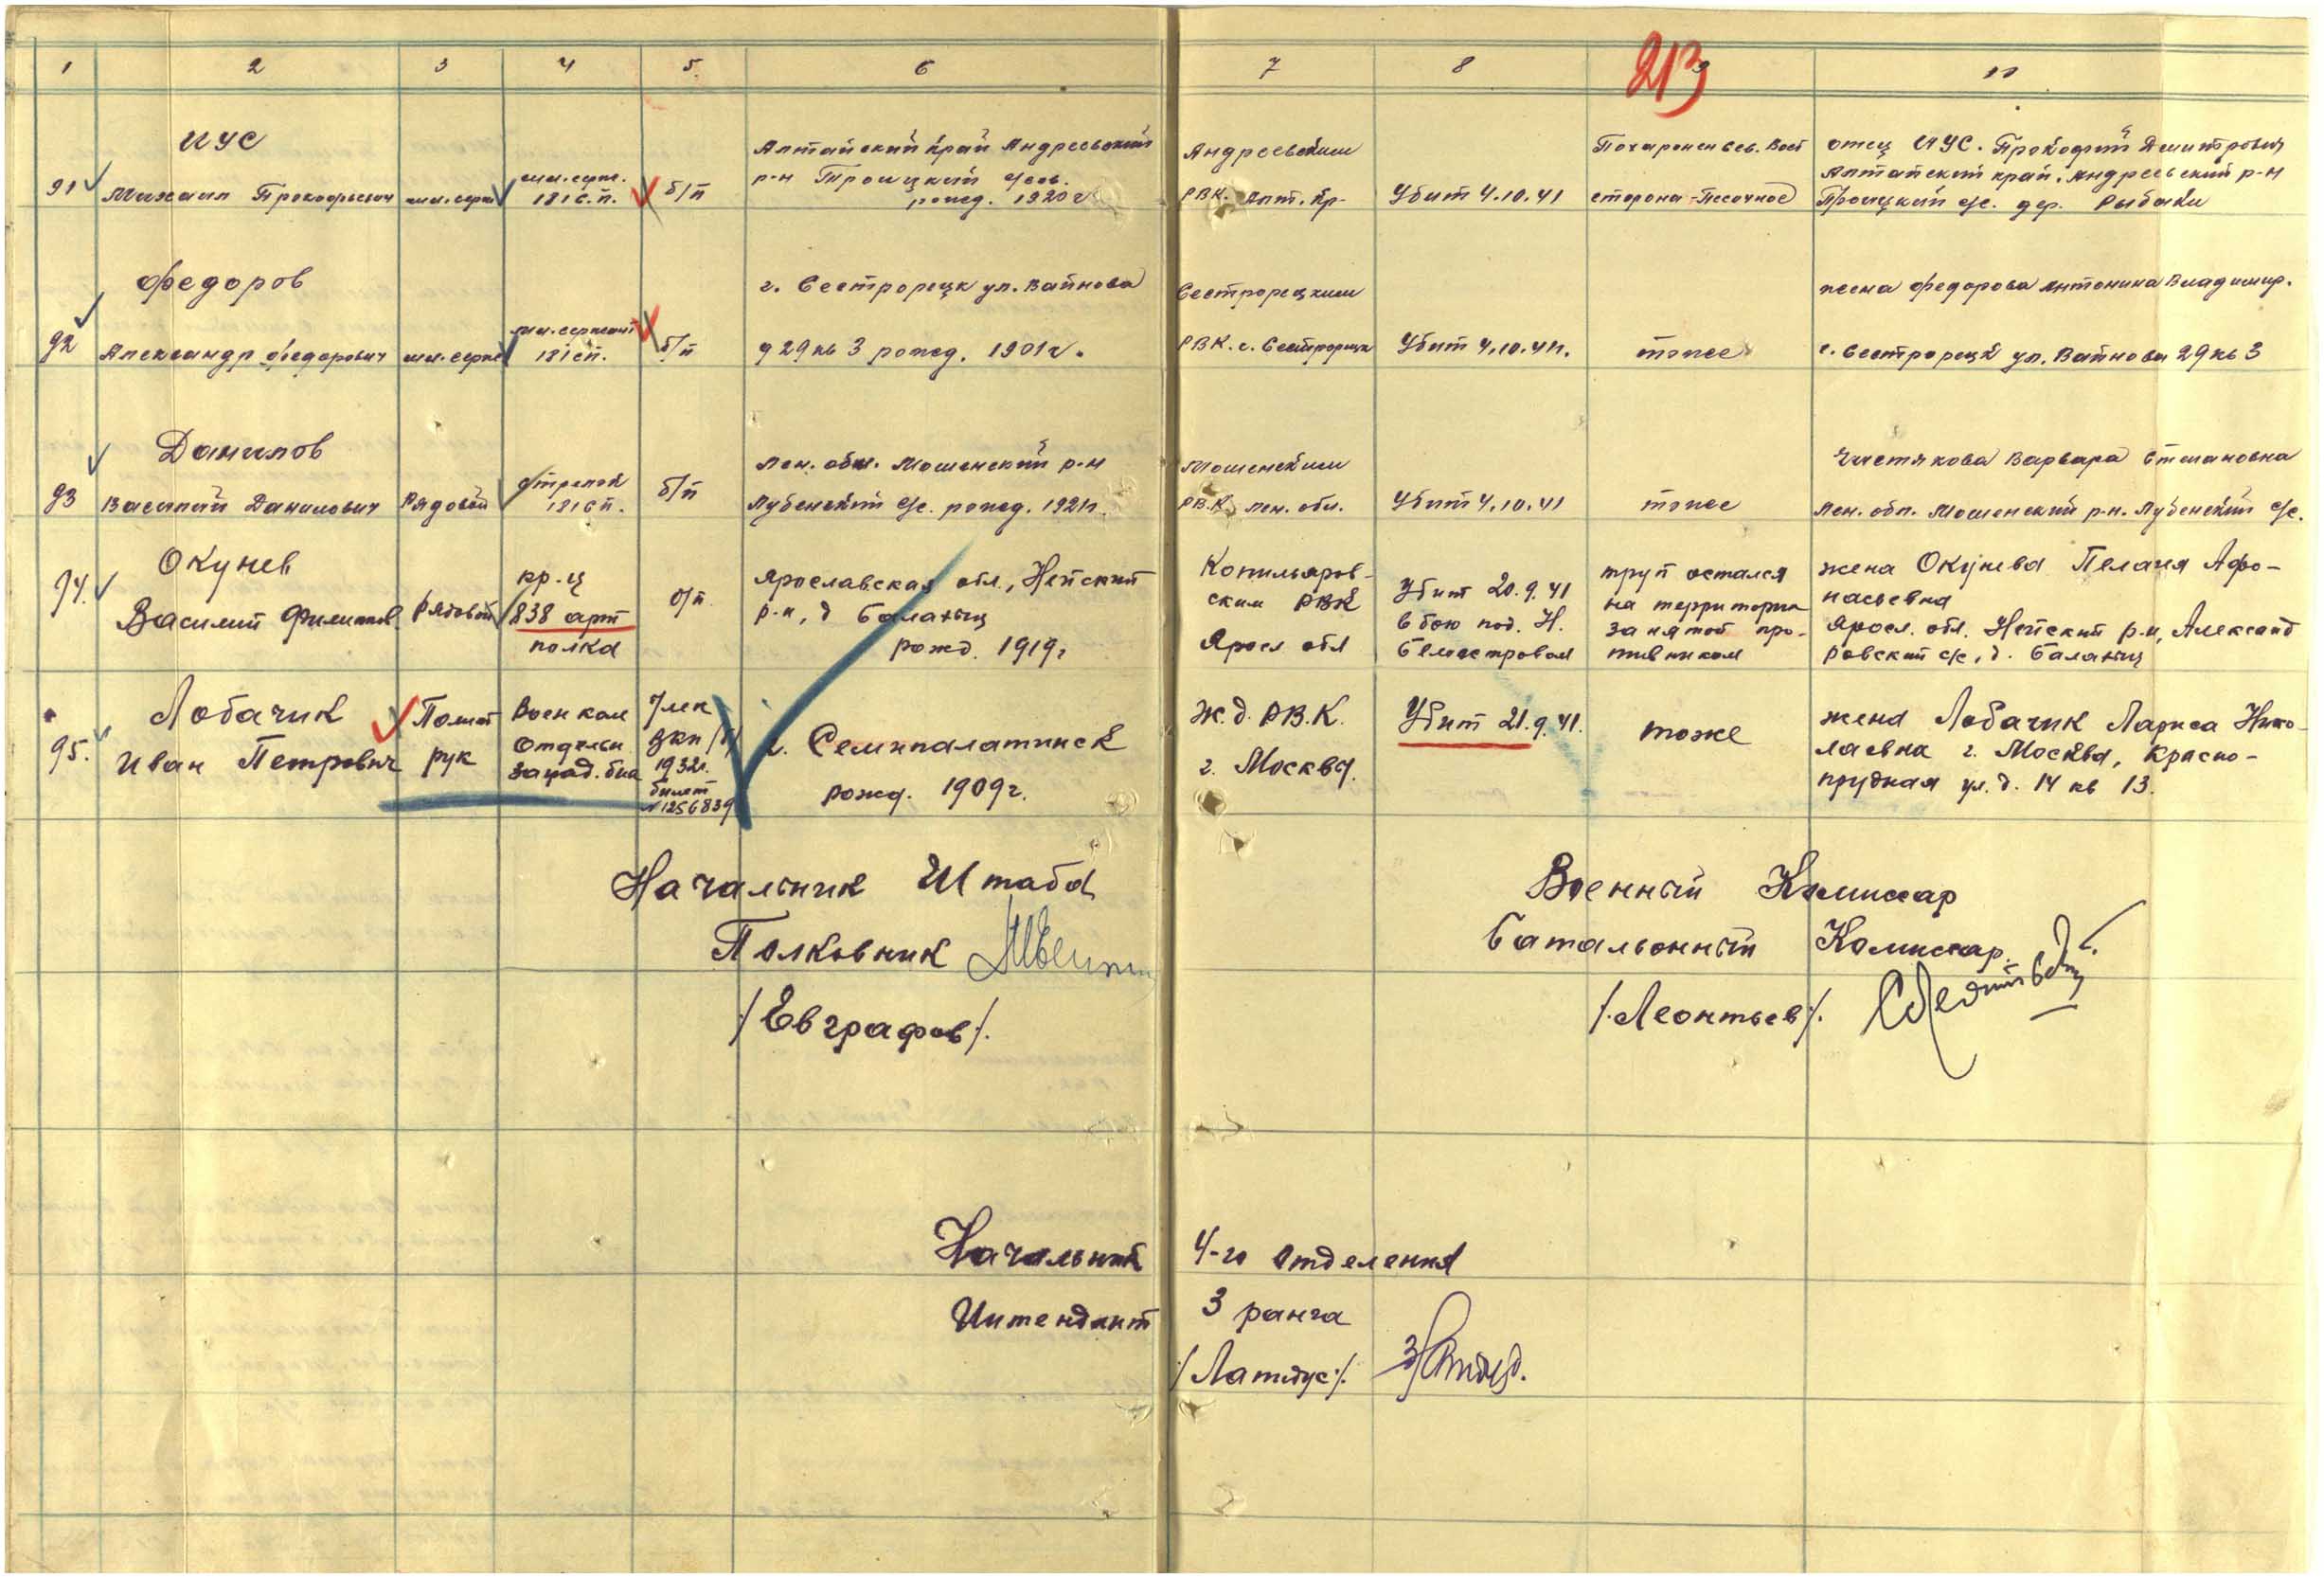 1 2 3 4 5 6 7 8 9 10
213
ИУС
Алтайский край Андреевский
Андреевским
Похоронен сев. вост
отец ИУС. Прокофий Дмитрович
91 Михаил Прокофьевич мл. серж
мл. серж.
181 с.п.
б/п
р-н Троицкий с/сов.
рожд. 1920 г
РВК. Алт. кр.
Убит 4.10.41
сторона Песочное
Алтайский край. Андреевский р-н
Троицкий с/с. дер. Рыбаки
Федоров
г. Сестрорецк ул. Вайнова
Сестрорецким
жена Федорова Антонина Владимир.
92 Александр Федорович мл. серж
мл. сержант
181 сп.
б/п
д 29 кв 3 рожд. 1901 г.
РВК. г. Сестрорецк
Убит 4.10.41 г.
тоже
г. Сестрорецк ул. Вайнова 29 кв 3
Данилов
Лен. обл. Мошенский р-н
Мошенским
Чистякова Варвара Степановна
93 Василий Данилович Рядовой
стрелок
181 сп.
б/п
Лубенский с/с. рожд. 1921 г.
РВК. Лен. обл.
Убит 4.10.41
тоже
Лен. обл. Мошенский р-н. Лубенский с/с.
Окунев
94. Василий Филиппов. рядовой
кр-ц
838 арт
полка
б/п.
Ярославская обл., Нейский
р-н, д
рожд. 1919 г
ским РВК
Яросл обл
Убит 20.9.41
в бою под. Н.
Белоостровом
труп остался
на территории
занятой про-
тивником
жена Окунева Пелагея Афо-
насьевна
Яросл. обл. Нейский р-н, Александ
ровский с/с, д.
Лобачик
95. Иван Петрович
Полит
рук
Военком
Отдельн
заград. б-на
Член
ВКП/б/
1932 г.
билет
№1256839
г. Семипалатинск
рожд. 1909 г.
Ж. д. РВ.К.
г. Москва.
Убит 21.9.41.
тоже
жена Лобачик Лариса Нико-
лаевна г. Москва, Красно-
прудная ул. д. 14 кв 13.
Начальник Штаба
Полковник
/Евграфов/.
Военный Комиссар
Батальонный Комиссар.
/.Леонтьев/.
Начальник 4-го отделения
Интендант 3 ранга